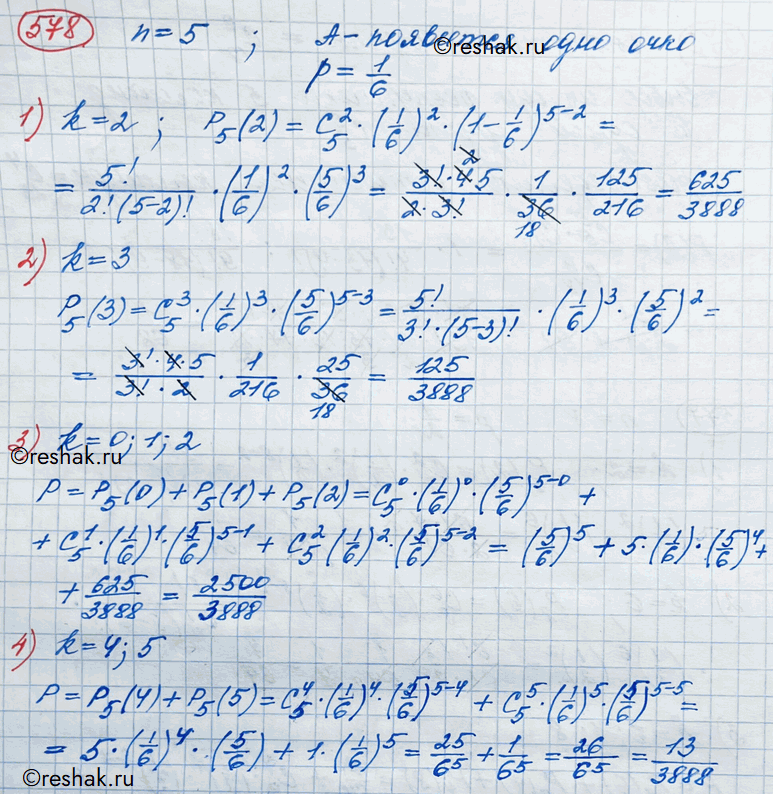 578 n=5 ; A - появится одно очко
©reshak.ru
p = 1/6
1) k=2 ; P_5(2) = C_5^2 · (1/6)^2 · (1 - 1/6)^{5-2} =
= 5!/(2!(5-2)!) · (1/6)^2 · (5/6)^3 = (3!·4·5)/(2·3!) · 1/36 · 125/216 = 625/3888
2
18
2) k=3
P_5(3) = C_5^3 · (1/6)^3 · (5/6)^{5-3} = 5!/(3!·(5-3)!) · (1/6)^3 · (5/6)^2 =
= (3!·4·5)/(3!·2) · 1/216 · 25/36 = 125/3888
18
3) k=0; 1; 2
©reshak.ru
P = P_5(0) + P_5(1) + P_5(2) = C_5^0 · (1/6)^0 · (5/6)^{5-0} +
+ C_5^1 · (1/6)^1 · (5/6)^{5-1} + C_5^2 (1/6)^2 · (5/6)^{5-2} = (5/6)^5 + 5 · (1/6) · (5/6)^4 +
+ 625/3888 = 2500/3888
4) k=4; 5
P = P_5(4) + P_5(5) = C_5^4 · (1/6)^4 · (5/6)^{5-4} + C_5^5 · (1/6)^5 · (5/6)^{5-5} =
= 5 · (1/6)^4 · (5/6) + 1 · (1/6)^5 = 25/6^5 + 1/6^5 = 26/6^5 = 13/3888
©reshak.ru